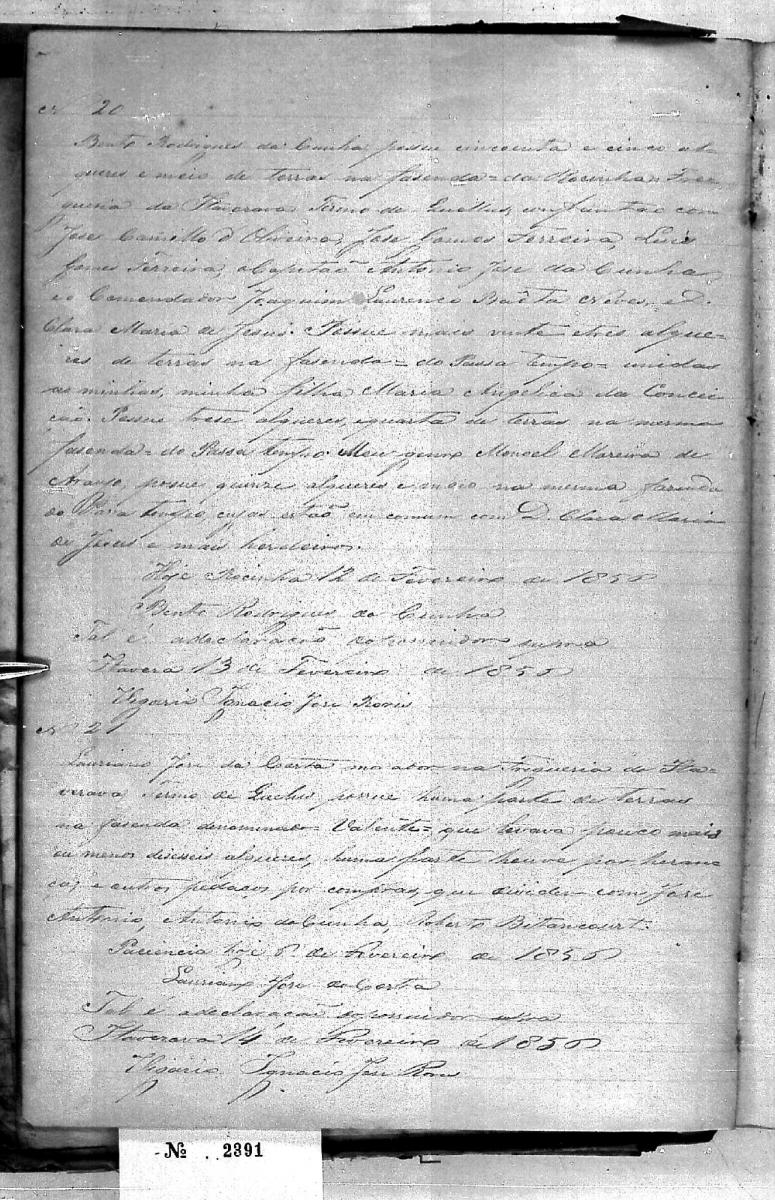 Nº 20
Bento Rodrigues da Cunha possue cincoenta e cinco al
queres e meio de terras na fasenda = da Rocinha = Fre
guesia da Itaverava Termo de Quelluz, confinão com
Jose Camillo d'Oliveira, Jose Gomes Ferreira, Luis
Gomes Ferreira, o Capitão Antonio Jose da Cunha
e o Comendador Joaquim Lourenço Baêta Neves, e D.
Clara Maria de Jesus. Possue mais vente e tres alque=
res de terras na fasenda = do Passa tempo = unidas
as minhas, minha filha Maria Angelica da Concei
cão. Possue trese alqueres, e quarta de terras na mesma
fasenda = do Passa tempo. Meu genro Manoel Moreira de
Araujo, posue quinze alqueres e meio na mesma fazenda
do Passa tempo, cujas estão em comum com D. Clara Maria
de Jesus e mais herdeiros.
Hoje Rocinha 12 de Fevereiro de 1856
Bento Rodrigues da Cunha
Tal é a declaração do possuidor supra
Itavera 13 de Fevereiro de 1856
Vigario Ignacio Jose
Nº 21
Lauriano Jose da Costa morador na Freguesia de Ita=
verava Termo de Queluz, possue huma parte de terras
na fasenda denominada = Valente =, que levava pouco mais
ou menos diseseis alqueres, huma parte houve por heran
ça, e outros pedaços por compras, que divide com Jose
Antonio, Antonio da Cunha, Roberto Bitancourt.
Paciencia hoje 6 de Fevereiro de 1856
Lauriano Jose da Costa
Tal é a declaração do possuidor supra
Itaverava 14 de Fevereiro de 1856
Vigario Ignacio Jose
Nº 2391